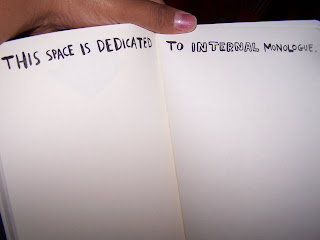 THIS SPACE IS DEDICATED TO INTERNAL MONOLOGUE.